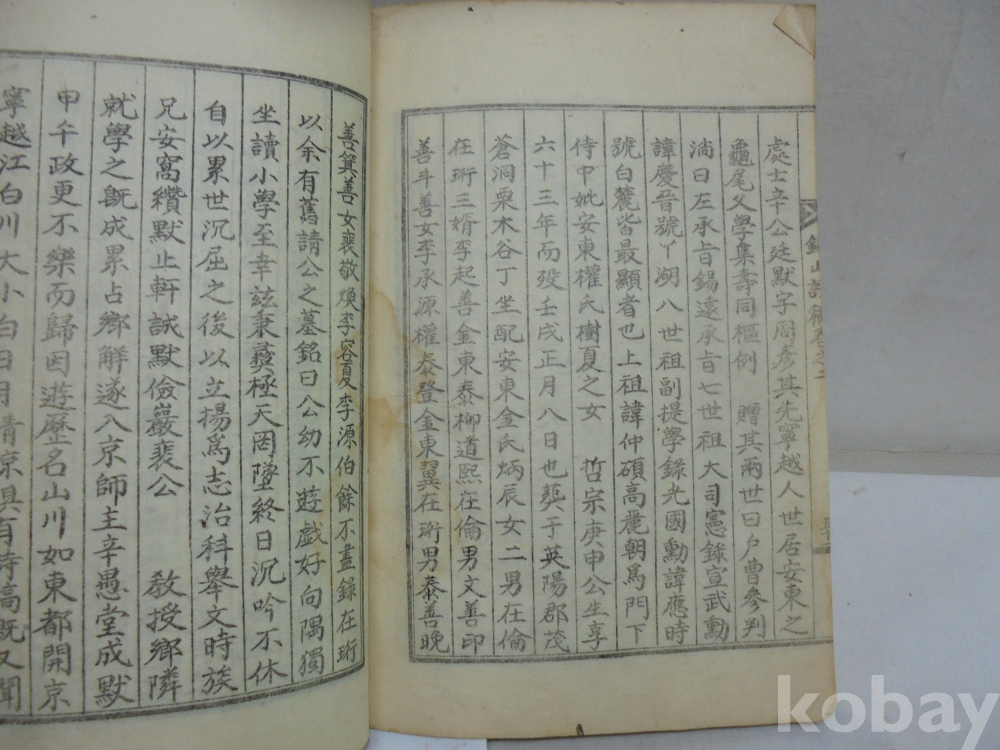 處士辛公廷默字周彥其先寧越人世居安東之
龜尾父學集壽同樞例 贈其兩世曰戶曹參判
淌曰左承旨錫遠承旨七世祖大司憲錄宣武勳
諱慶晉號丫湖八世祖副提學錄光國勳諱應時
號白麓皆最顯者也上祖諱仲碩高麗朝爲門下
侍中妣安東權氏樹夏之女 哲宗庚申公生享
六十三年而歿壬戌正月八日也葬于英陽郡茂
蒼洞栗木谷丁坐配安東金氏炳辰女二男在倫
在珩三婿李起善金東泰柳道熙在倫男文善印
善斗善女李承源權泰登金東翼在珩男泰善晚
善箕善女裵敬煥李容夏李源伯餘不盡錄在珩
以余有舊請公之墓銘曰公幼不遊戲好向隅獨
坐讀小學至幸玆秉彝極天罔墜終日沉吟不休
自以累世沉屈之後以立揚爲志治科舉文時族
兄安窩纘默止軒誠默儉巖裵公 敎授鄉隣
就學之旣成累占鄉解遂入京師主辛愚堂成默
甲午政更不樂而歸因遊歷名山川如東都開京
寧越江白川大小白日月淸凉具有詩高旣又聞
kobay